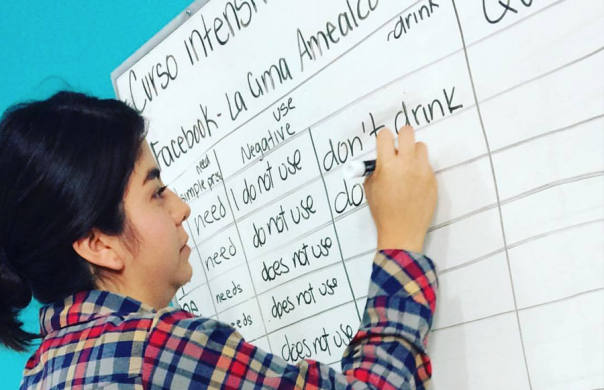 Curso intensi
Facebook - La Cima Amealco
need
use
-drink
Negative
simple
need
I do not use
don't drink
need
do not use
do
needs
does not use
needs
does not use
does not use